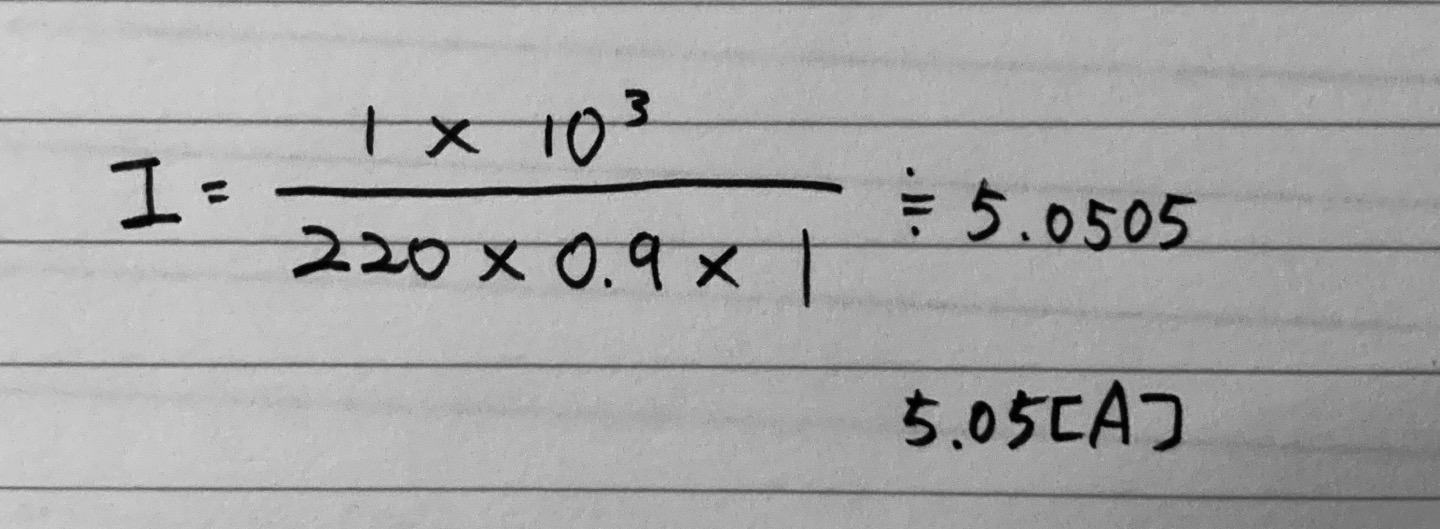 I = \frac{1 × 10³}{220 × 0.9 × 1} ≒ 5.0505
5.05[A]